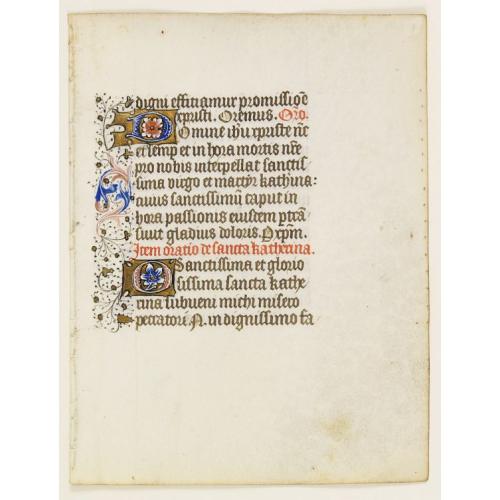 digni efficiamur promissiōe
xpristi. Oremus. Orō.
Domine ihū xpriste nc̄
et semp et in hora mortis nr̄e
pro nobis interpellat sanctis
sima virgo et martyr kathrina:
cuius sanctissimū caput in
hora passionis eiusdem
siuit gladius doloris.
Item oratio de sancta katherina.
O Sanctissima et glorio
sissima sancta kathe
rina subueni michi misero
peccatori N. in dignissimo fa